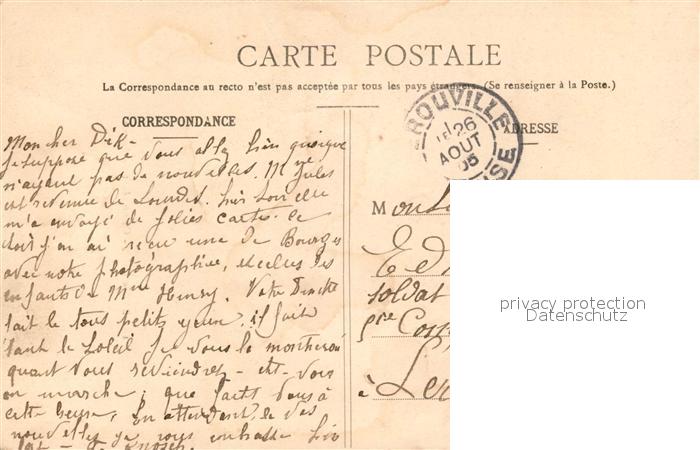 CARTE POSTALE
La Correspondance au recto n'est pas acceptée par tous les pays étrangers. (Se renseigner à la Poste.)
CORRESPONDANCE
ADRESSE
ROUVILLE
26
AOUT
05
ISE
Mon cher
Je suppose que vous allez bien quoique
n'ayant pas de nouvelles. Mme Jules
est revenue de Lourdes. hier soir elle
m'a envoyé de jolies cartes. ce
soir j'en ai reçu une de Bourges
avec notre photographie, et celles des
enfants de Mme Henry. Votre
fait le tous petits yeux, il fait
tant le soleil je vous la montrerai
quant vous reviendrez - est-vous
en marche; que faite vous à
cette heure, En attendant de vos
nouvelles je vous embrasse bien
Monsi
Ed
soldat
Com
à Le
privacy protection
Datenschutz